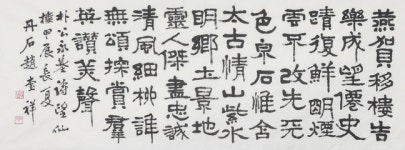 燕賀移樓吉
樂成望僊史
蹟復鮮明煙
雲不改先天
色泉石惟含
太古情山紫水
明鄉土景地
靈人傑盡忠誠
清風細柳誰
無頌探賞羣
英讚美聲
朴公永基詩望仙
樓甲辰長夏
丹石趙堂祥